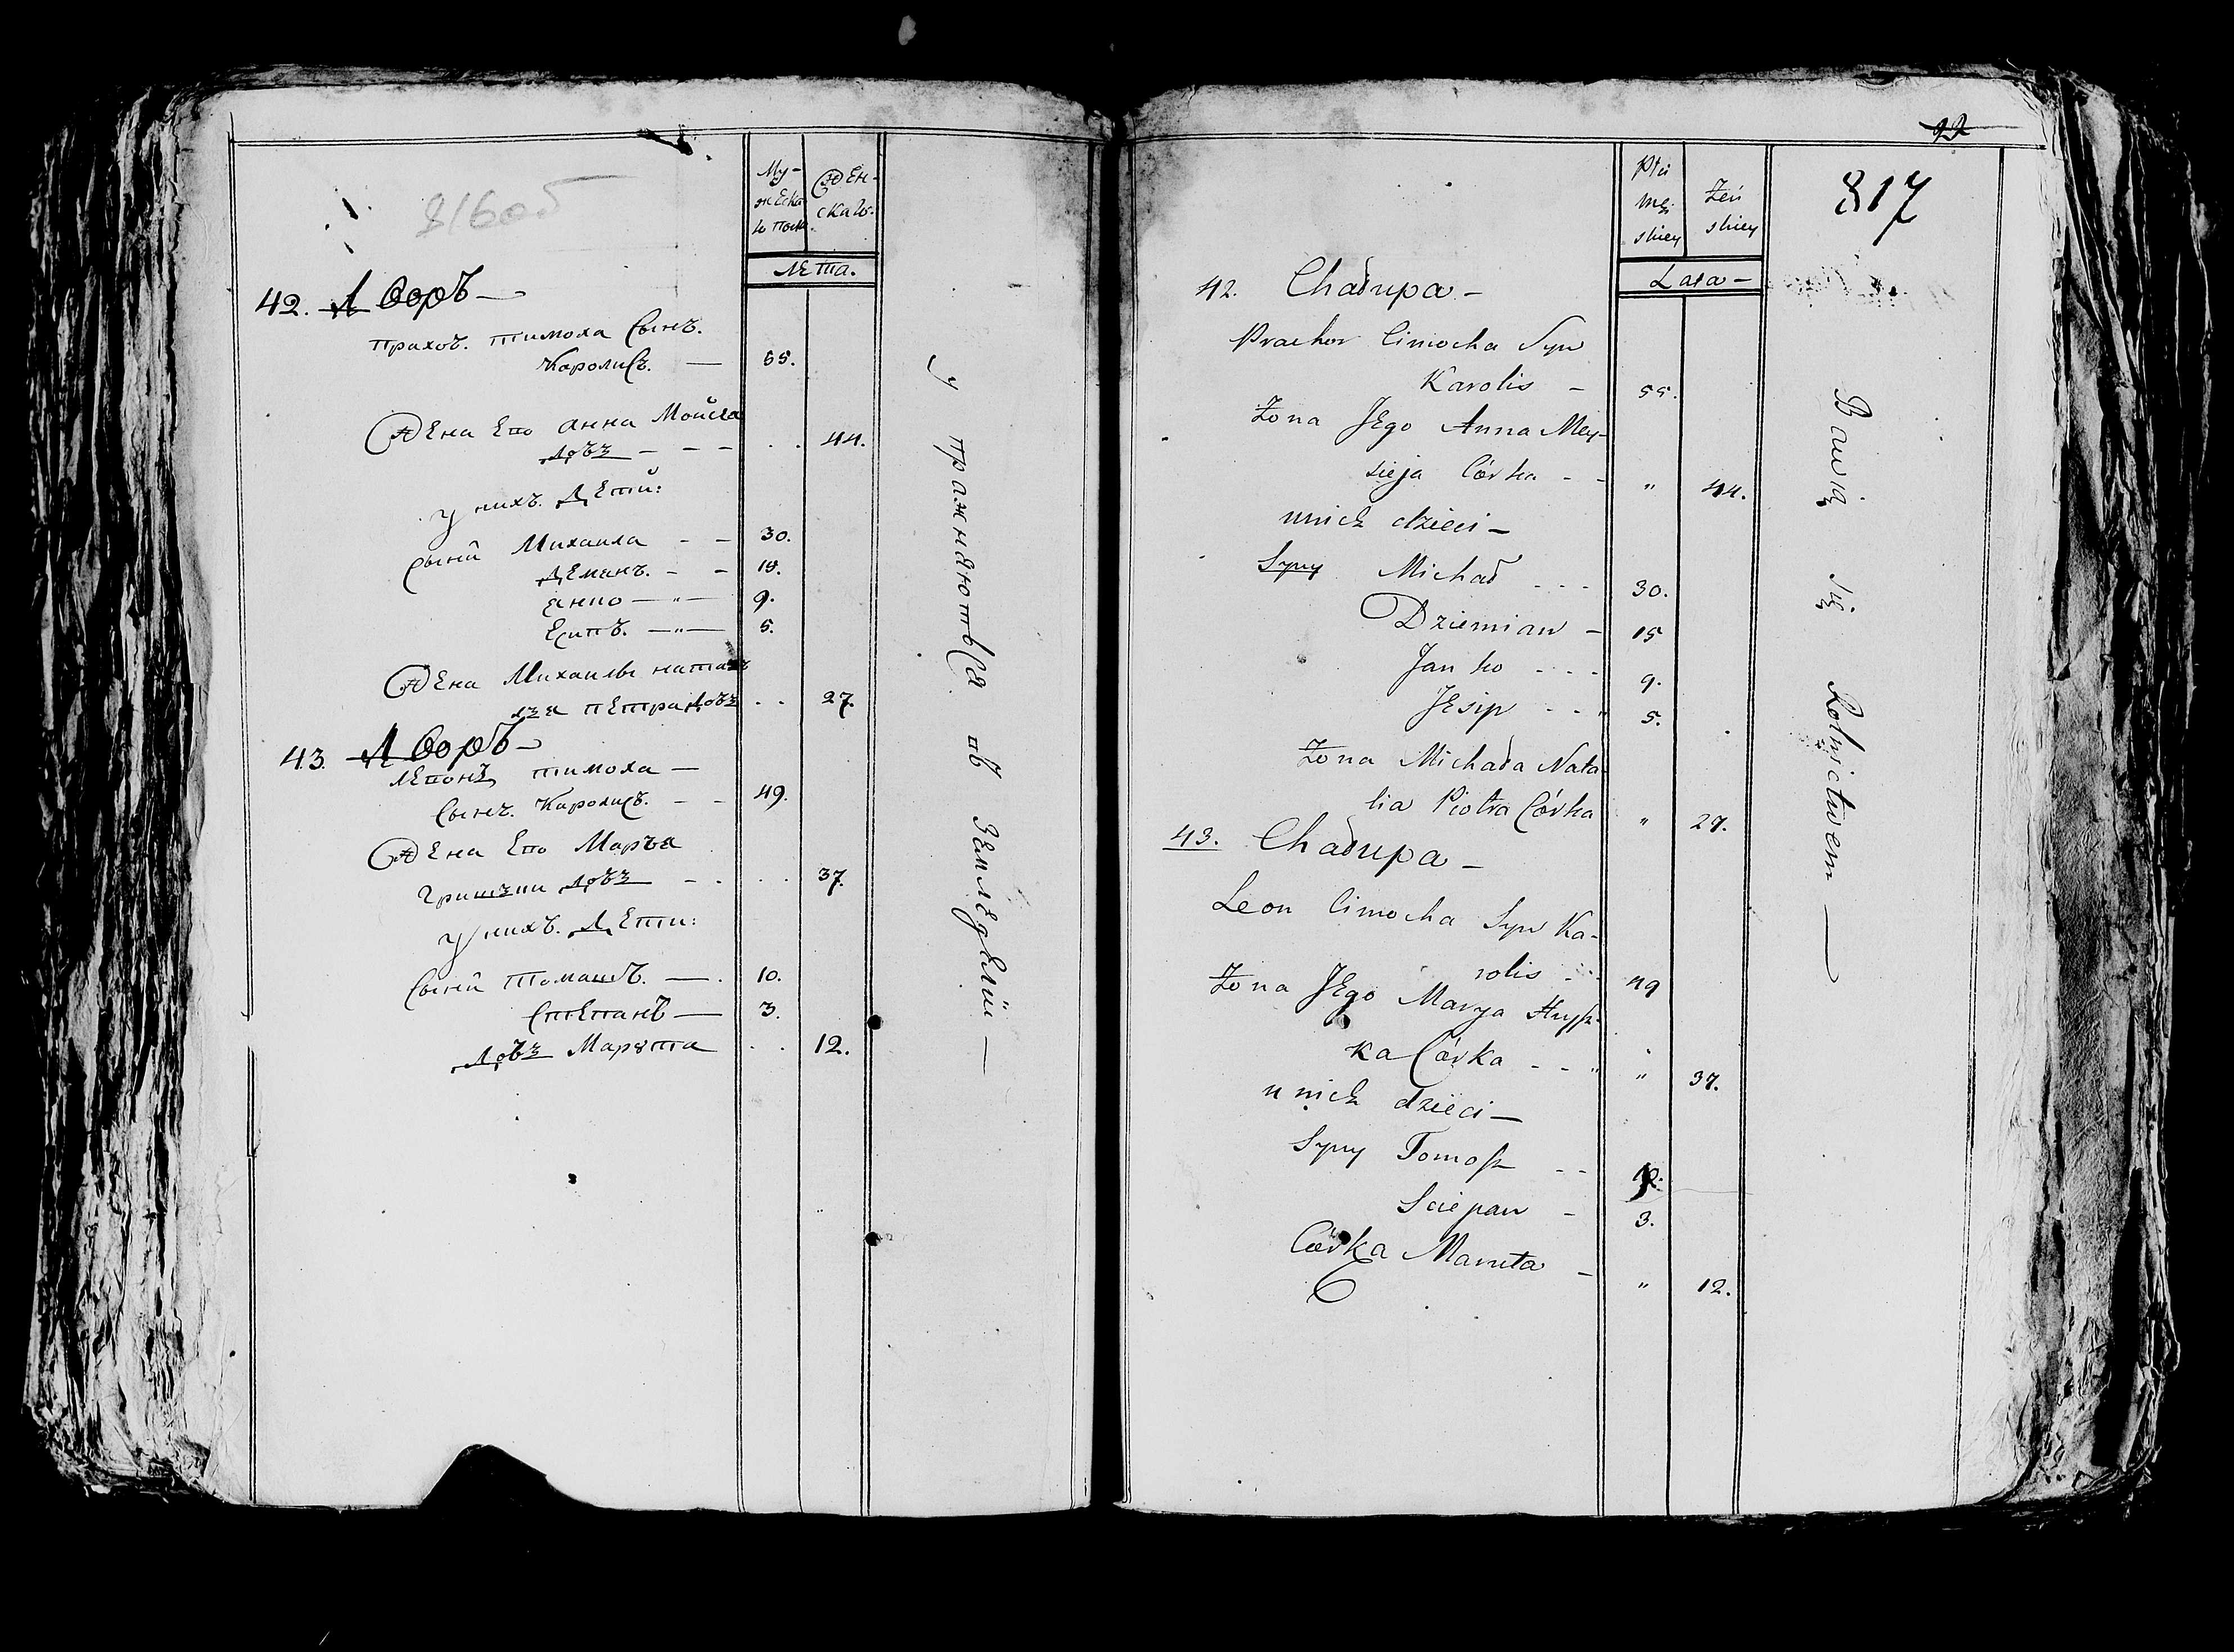 816об
Му-
жеска
го пола
Жен-
скаго.
Лета.
42. Дворъ —
прахоъ. тимоха Сынъ.
Каролисъ. — 55.
Жена Его анна Мойсея
дочъ — — — . . 44.
У нихъ. Дети:
Сыни Михаила — — 30.
Деманъ. — — 15.
янко — „ — 9.
Есипъ. — „ — 5.
Жена Михаилы
петра дочъ . . 27.
43. Дворъ —
тимоха —
Сынъ. Каролисъ. — — 49.
Жена Его Маръя
дочъ — . . . 37.
У нихъ. Дети:
Сыни томашъ. — . 10.
Степанъ — 3.
дочъ Марута . . 12.
упражняютьСя въ Земледелии —
22
817
Płci
męz
skiey
Żeń
skiey
Lata —
42. Chałupa —
Prachor Cimocha Syn
Karolis — 55.
Żona JEgo Anna Mey-
sieja Córka - - „ 44.
unich dzieci —
Syny Michał - - - 30.
Dziemian — 15
Janko - - - 9.
JEsip - - „ 5.
Żona Michała Nata-
lia Piotra Córka „ 27.
43. Chałupa —
Leon Cimocha Syn Ka-
rolis - - 49
Żona JEgo Marya Hrysz-
ka Córka - - „ „ 37.
u nich dzieci —
Syny Tomosz - - 10.
Sciepan - 3.
Córka Maruta — „ 12.
Bawią się Rolnictwem —